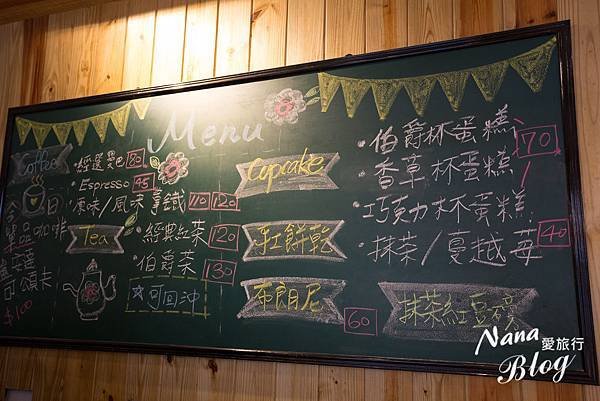 Menu
Coffee
經選黑咖 80
Espresso 45
原味/風味拿鐵 110 120
今日
單品咖啡
可頌夫
$100
Tea
經典紅茶 120
伯爵茶 130
☆可回沖
Cupcake
手工餅乾
布朗尼 60
·伯爵杯蛋糕 70
·香草杯蛋糕
·巧克力杯蛋糕
·抹茶/蔓越莓 40
抹茶紅豆磅
Nana 愛旅行
Blog